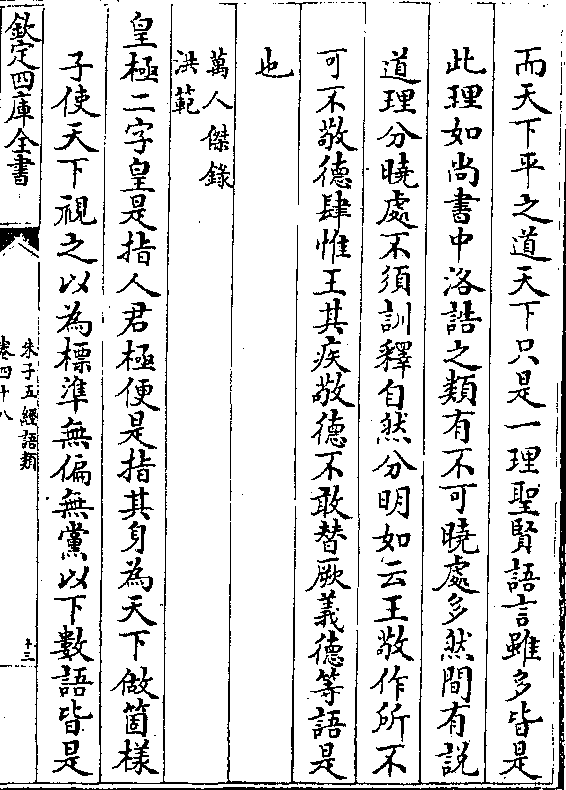 而天下平之道天下只是一理聖賢語言雖多皆是
此理如尚書中洛誥之類有不可曉處多然間有説
道理分曉處不須訓釋自然分明如云王敬作所不
可不敬德肆惟王其疾敬德不敢替厥義德等語是
也
萬人傑錄
洪範
皇極二字皇是指人君極便是指其身為天下做箇樣
子使天下視之以為標準無偏無黨以下數語皆是
欽定四庫全書
朱子五經語類
卷四十八
十三